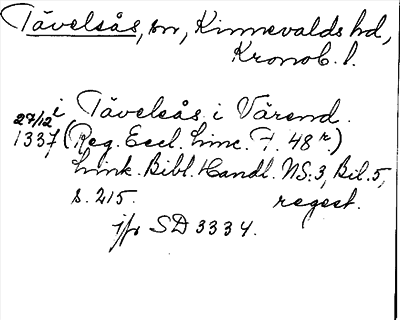 Tävelsås, sn, Kinnevalds hd,
Kronob. l.
27/12 i Tävelsås i Värend.
1337 (Reg. Eccl. Linc. F. 48 r.)
Link. Bibl. Handl. NS: 3, Bil. 5,
s. 215. regest.
jfr SD 3334.